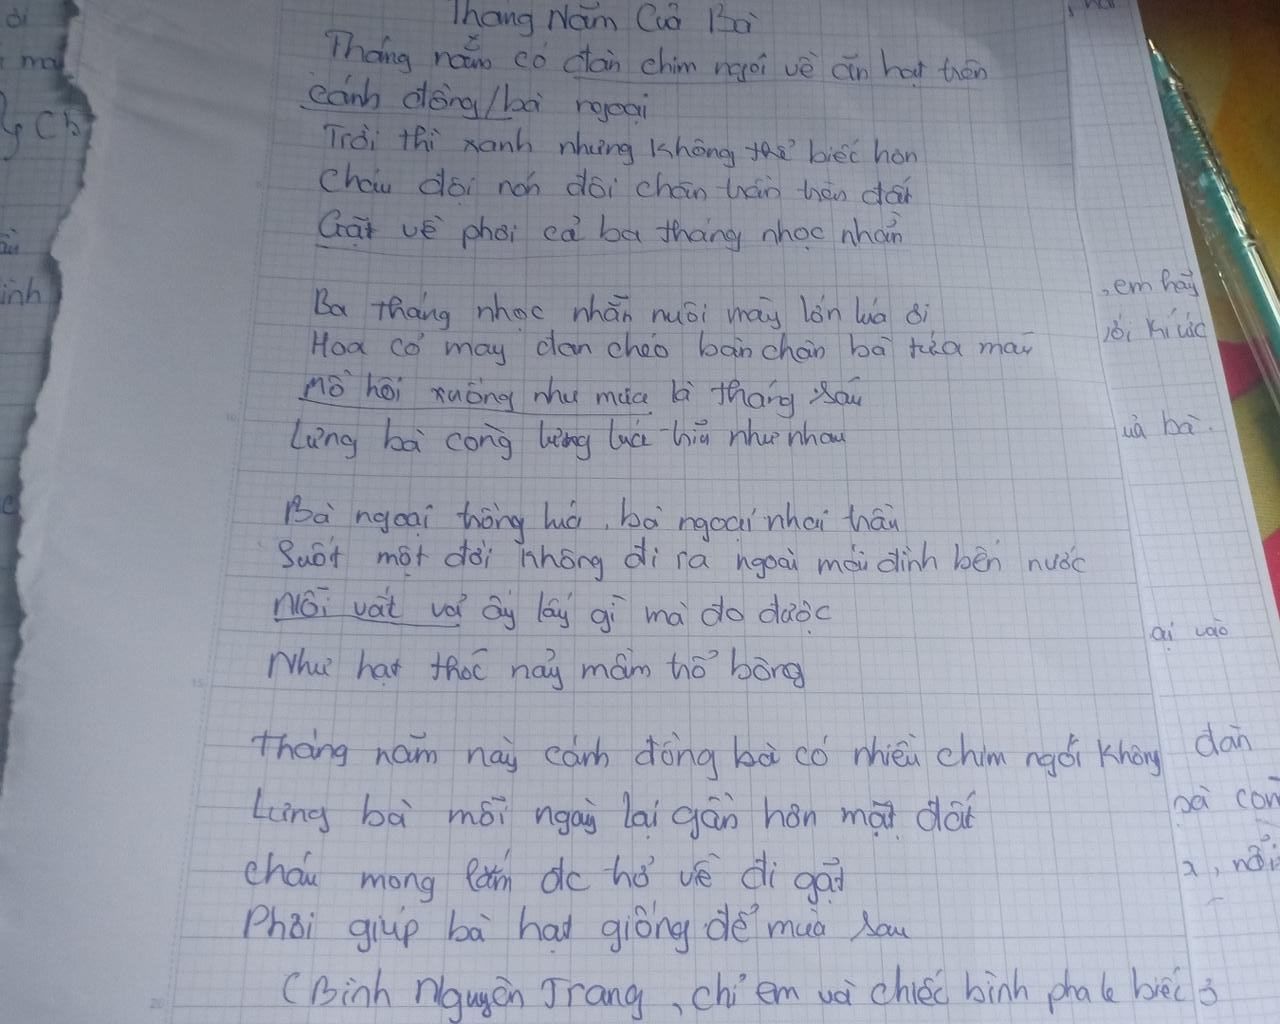 Tháng Năm Của Bà
Tháng năm có đàn chim ngói về ăn hạt trên
cánh đồng/bà ngoại
Trời thì xanh nhưng không thể biếc hơn
Cháu đội nón đôi chân trần trên đất
Gặt về phơi cả ba tháng nhọc nhằn
Ba tháng nhọc nhằn nuôi mẩy lớn lúa ơi
Hoa cỏ may đan chéo bàn chân bà tứa máu
Mồ hôi xuống như mưa là tháng sáu
Lưng bà còng lưng lúa trĩu như nhau
Bà ngoại trồng lúa, bà ngoại nhai trầu
Suốt một đời không đi ra ngoài mái đình bến nước
Nỗi vất vả ấy lấy gì mà đo được
Như hạt thóc nảy mầm trổ bông
Tháng năm này cánh đồng bà có nhiều chim ngói không
Lưng bà mỗi ngày lại gần hơn mặt đất
cháu mong lắm đc trở về đi gặt
Phơi giúp bà hạt giống để mùa sau
(Bình Nguyên Trang, chỉ em và chiếc bình pha lê biếc)
em hãy
kí ức
bà.
ại vào
đàn
bà còn